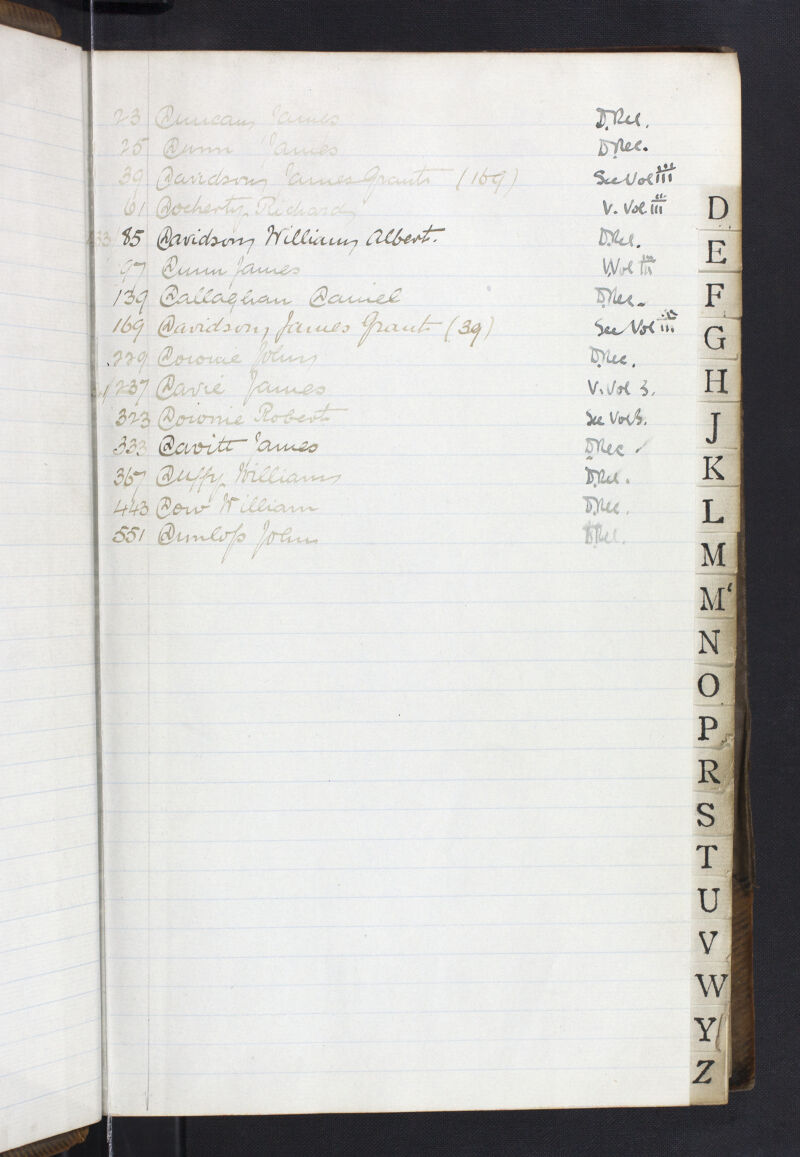 23 Duncan James D.Rec.
25 Dunn James D.Rec.
39 Davidson James Grant (169) See Vol III
61 Docherty Richard V. Vol III
85 Davidson William Albert. D.Rec.
97 Dunn James V Vol III
139 Dallaghan Daniel D.Rec.
169 Davidson James Grant (39) See Vol III
229 Downie John D.Rec.
237 Davie James V. Vol 3.
323 Downie Robert See Vol 3.
333 Davitt James D.Rec
367 Duffy William D.Rec.
443 Dow William D.Rec.
551 Dunlop John D.Rec.
D
E
F
G
H
J
K
L
M
M‘
N
O
P
R
S
T
U
V
W
Y
Z